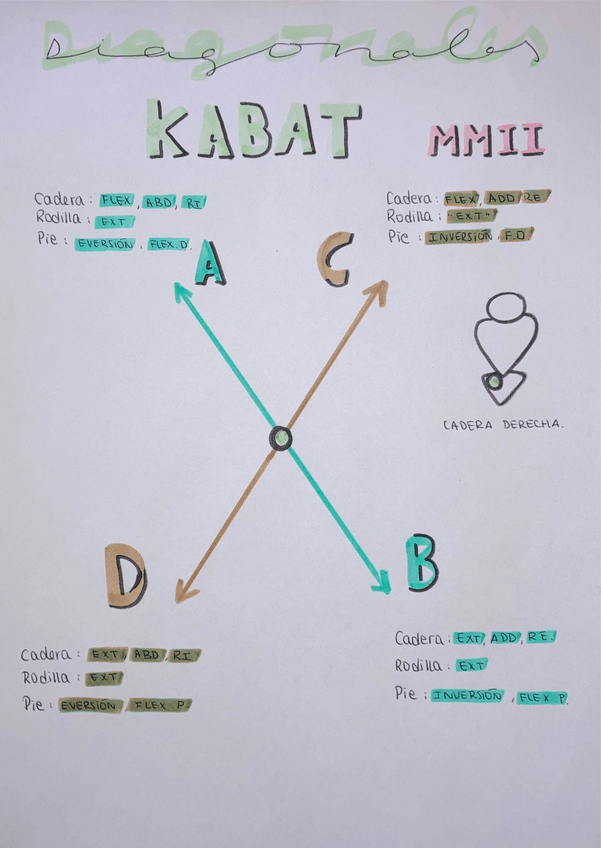 Diagonales
KABAT MMII
Cadera : FLEX, ABD, RI
Rodilla : EXT
Pie : EVERSIÓN , FLEX D.
A
Cadera : FLEX, ADD, RE
Rodilla : "EXT"
Pie : INVERSIÓN , F.D.
C
CADERA DERECHA.
D
Cadera : EXT, ABD, RI
Rodilla : EXT
Pie : EVERSIÓN, FLEX P.
B
Cadera : EXT, ADD, RE.
Rodilla : EXT
Pie : INVERSIÓN , FLEX P.